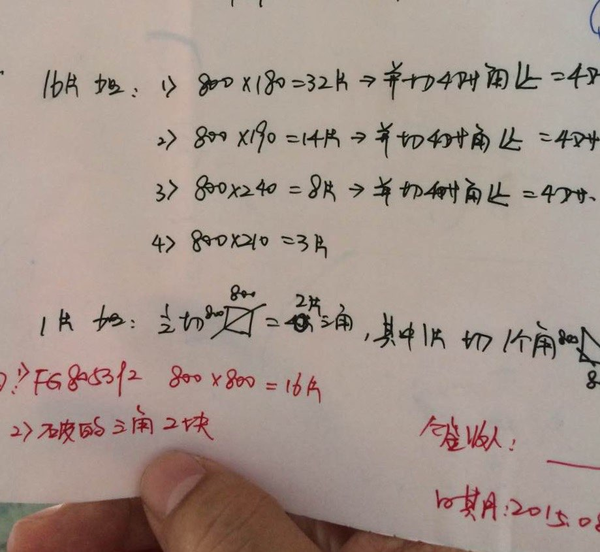 16片加: 1> 800×180=32片→并切45°角 =4
2> 800×190=14片→并切45°角 =4
3> 800×240=8片→并切45°角 =4
4> 800×210=3片
1片加: 1/2切 800 800 = 2片 三角, 其中1片切1个角 800 8
1> FG805392 800×800=16片
2> 破的三角2块
签收人:
日期:2015.08